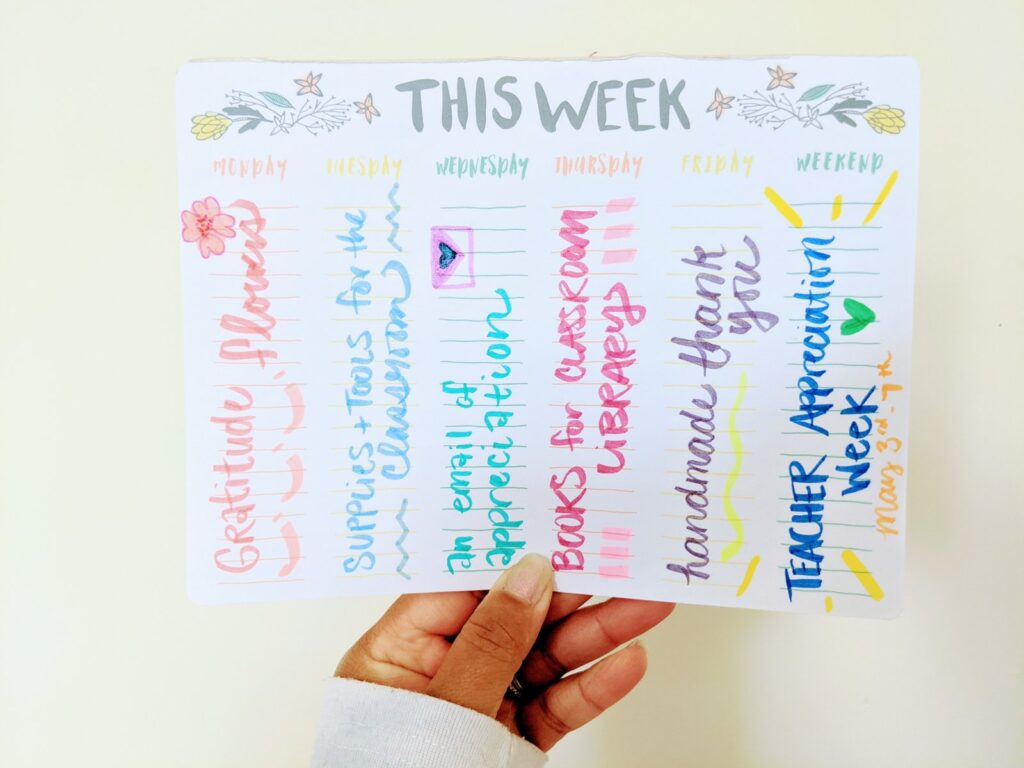 THIS WEEK
MONDAY
TUESDAY
WEDNESDAY
THURSDAY
FRIDAY
WEEKEND
Gratitude flowers
SUPPLIES + TOOLS for the
Classroom
an email of
appreciation
BOOKS for CLASSROOM
LiBRARY
handmade thank
you
TEACHER Appreciation
Week
may 3rd - 7th